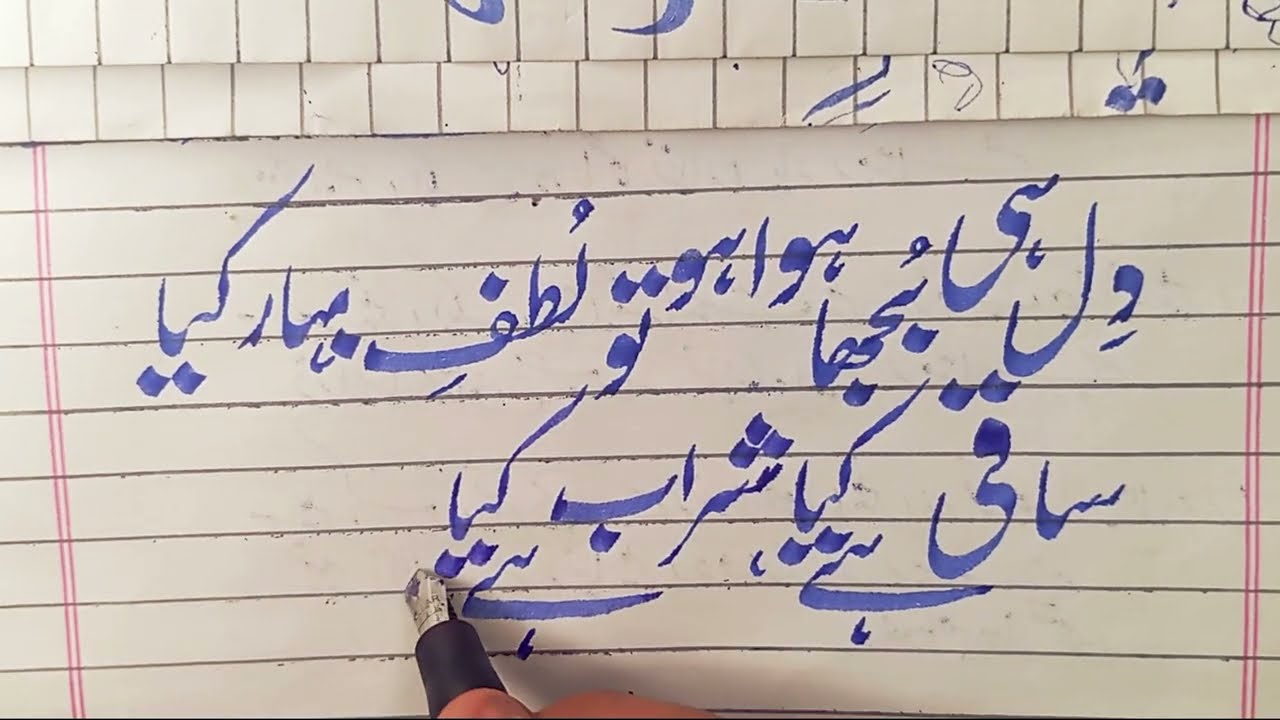 دِل ہی بُجھا ہوا ہو تو لُطفِ بہار کیا
ساقی ہے کیا شراب ہے کیا